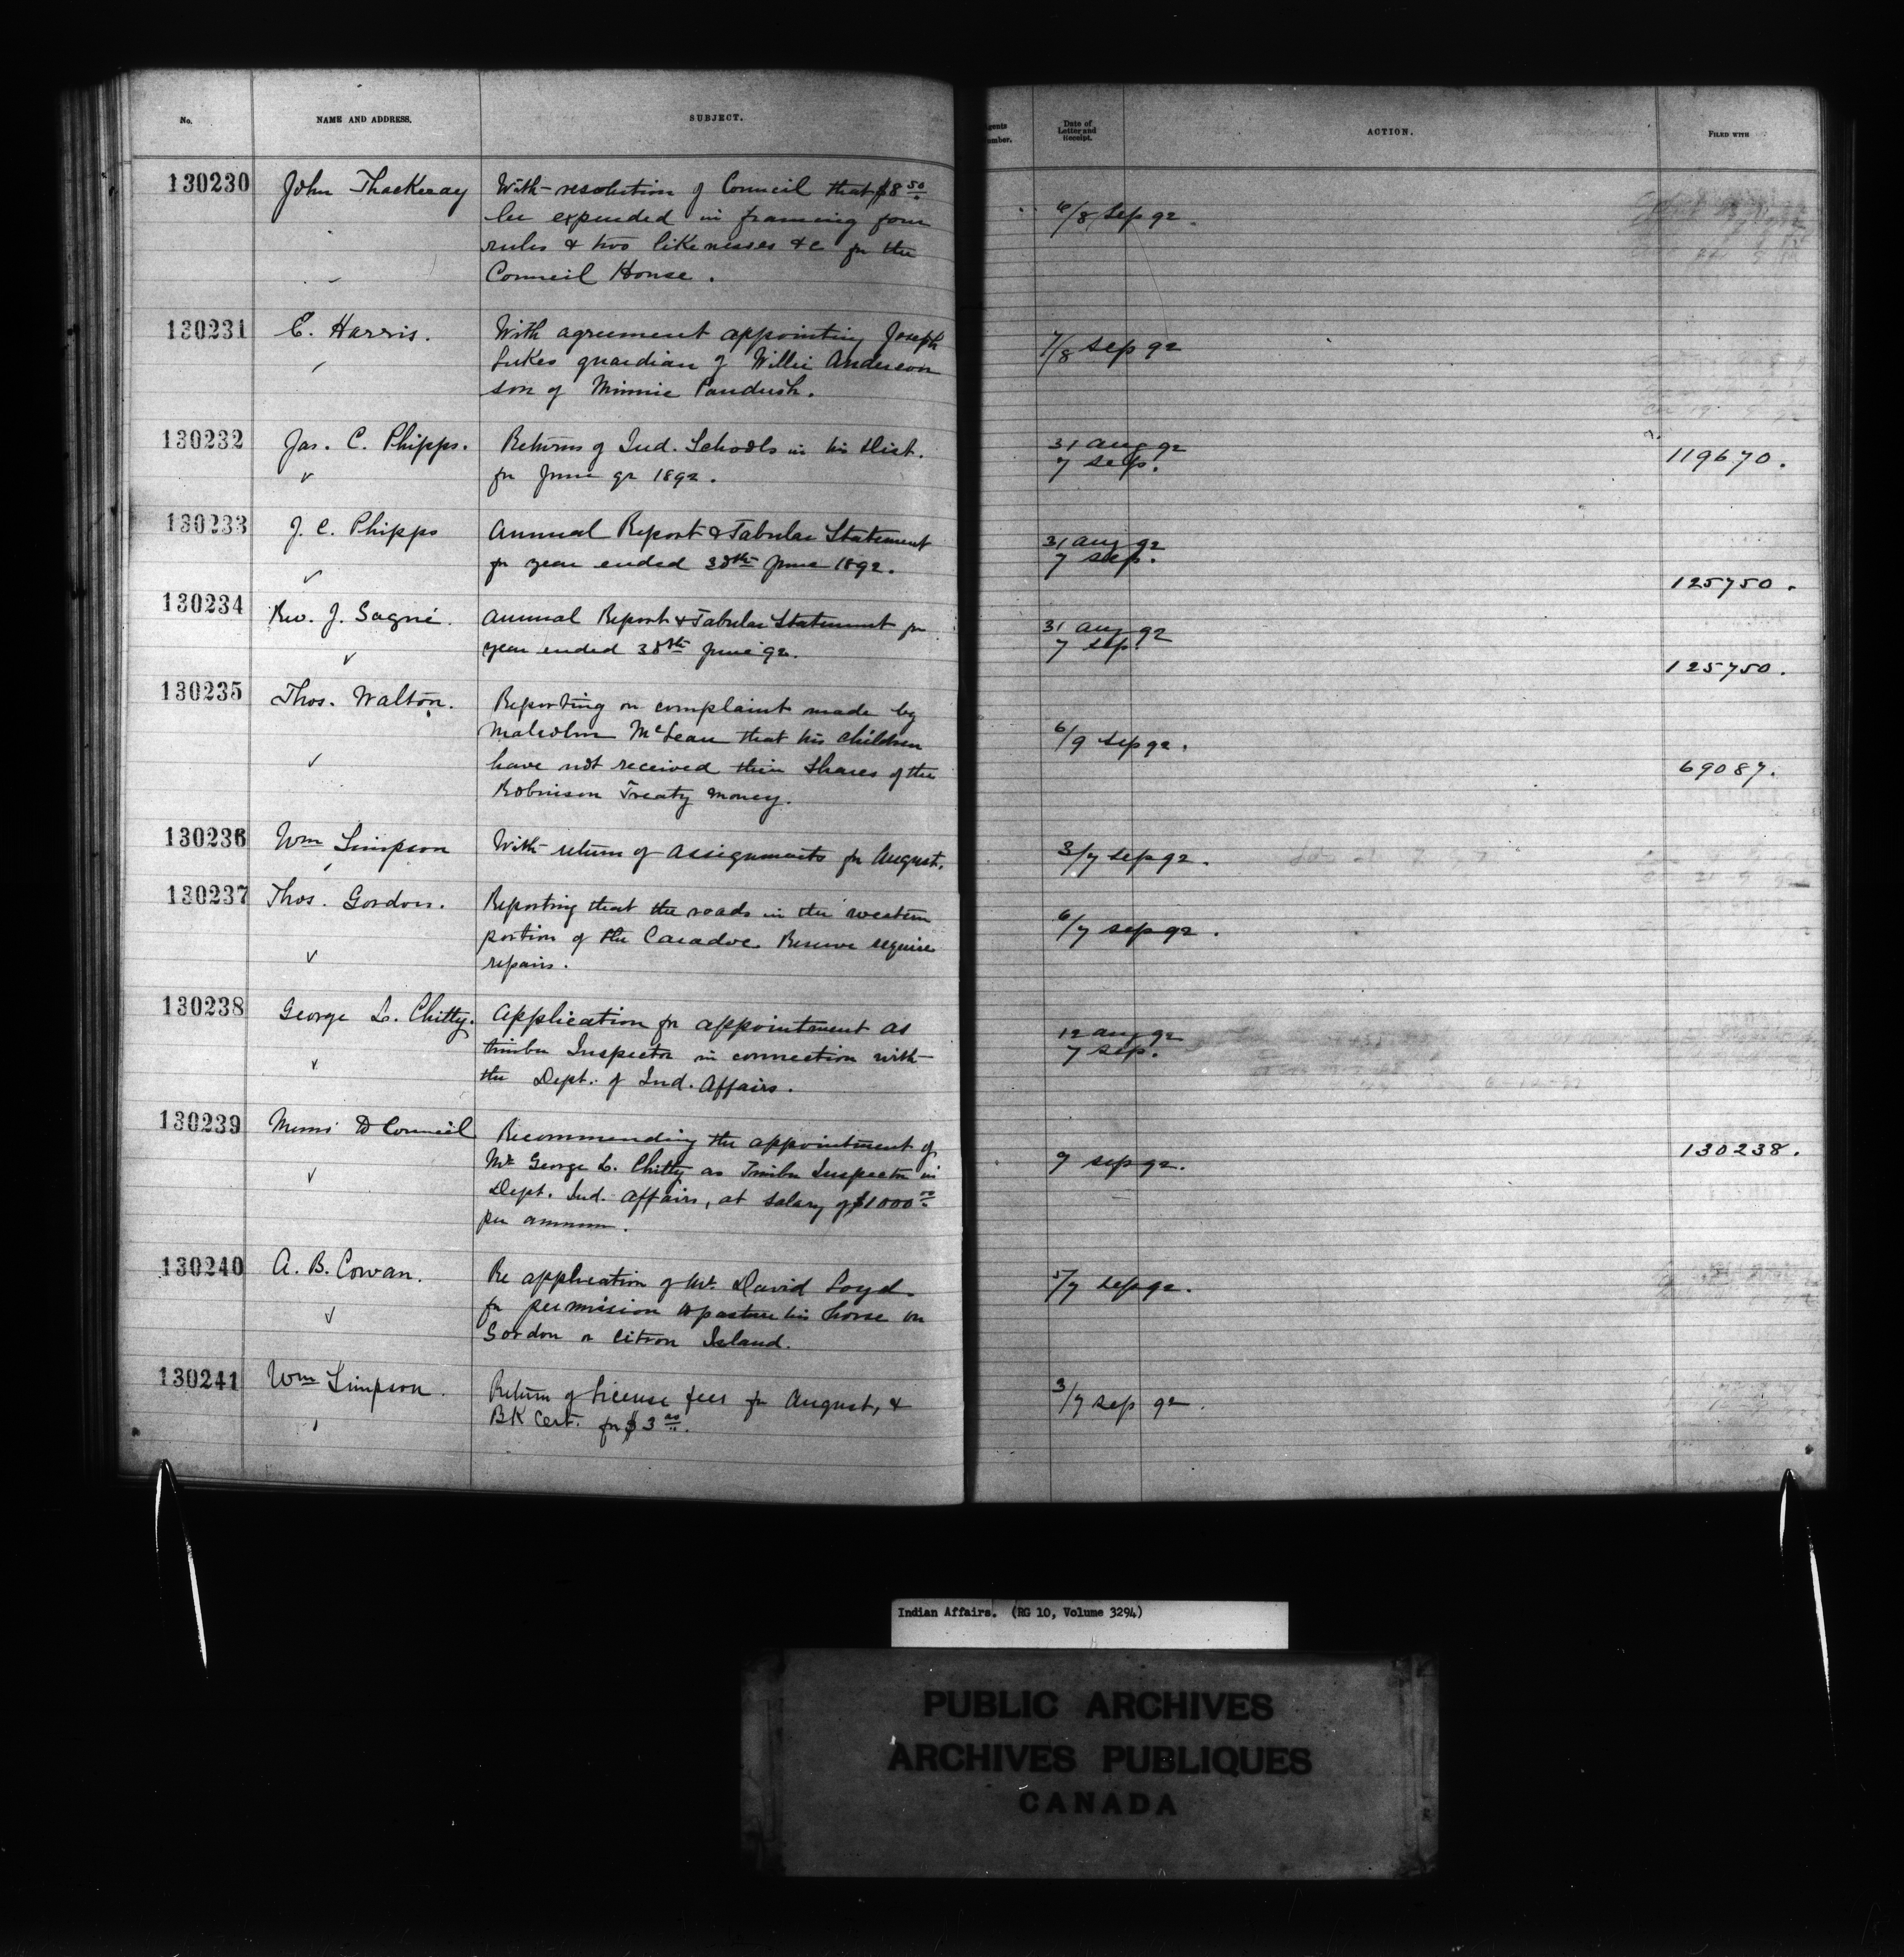 No.
NAME AND ADDRESS.
SUBJECT.
Agents
Number.
Date of
Letter and
Receipt.
ACTION.
FILED WITH
130230
John Thackeray
With resolution of Council that $8 50
be expended in framing four
rules & two likenesses &c for the
Council House.
6/8 Sep 92.
130231
C. Harris.
With agreement appointing Joseph
Lukes guardian of Willie Anderson
son of Minnie Paudush.
7/8 Sep 92
130232
Jas. C. Phipps.
Returns of Ind. Schools in his Dist.
for June qr 1892.
31 Aug 92
7 Sep.
119670.
130233
J. C. Phipps
Annual Report & Tabular Statement
for year ended 30th June 1892.
31 Aug 92
7 Sep.
125750.
130234
Rev. J. Sagné.
Annual Report & Tabular Statement for
year ended 30th June 92.
31 Aug 92
7 Sep.
125750.
130235
Thos. Walton.
Reporting on complaint made by
Malcolm McLean that his children
have not received their shares of the
Robinson Treaty money.
6/9 Sep 92.
69087.
130236
Wm Simpson
With return of assignments for August.
3/7 Sep 92.
130237
Thos. Gordon.
Reporting that the roads in the western
portion of the Caradoc Reserve require
repairs.
6/7 Sep 92.
130238
George L. Chitty.
Application for appointment as
timber Inspector in connection with
the Dept. of Ind. Affairs.
12 Aug 92
7 Sep.
130239
Memo to Council
Recommending the appointment of
Mr George L. Chitty as Timber Inspector in
Dept. Ind. Affairs, at salary of $1000 00
per annum.
9 Sep 92.
130238.
130240
A. B. Cowan.
Re application of Mr. David Loyd
for permission to pasture his horse on
Gordon or Citron Island.
5/7 Sep 92.
130241
Wm Simpson.
Return of license fees for August, &
BK Cert. for $3 00.
3/7 Sep 92.
Indian Affairs. (RG 10, Volume 3294)
PUBLIC ARCHIVES
ARCHIVES PUBLIQUES
CANADA